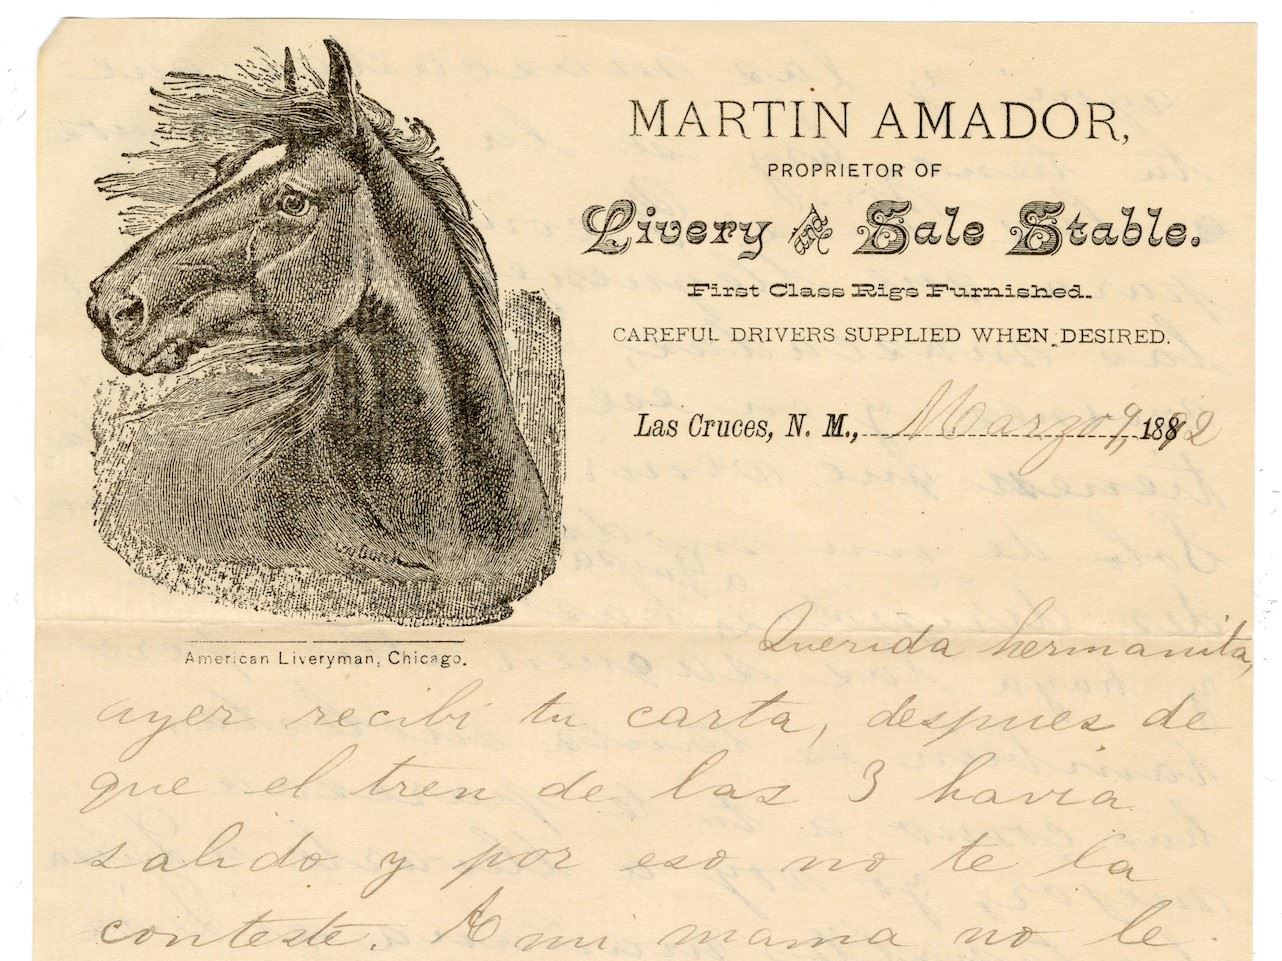 MARTIN AMADOR,
PROPRIETOR OF
Livery and Sale Stable.
First Class Rigs Furnished.
CAREFUL DRIVERS SUPPLIED WHEN DESIRED.
Las Cruces, N. M., Marzo 9, 1892
American Liveryman, Chicago.
Querida hermanita,
ayer recibi tu carta, despues de
que el tren de las 3 havia
salido y por eso no te la
conteste. A mi mama no le